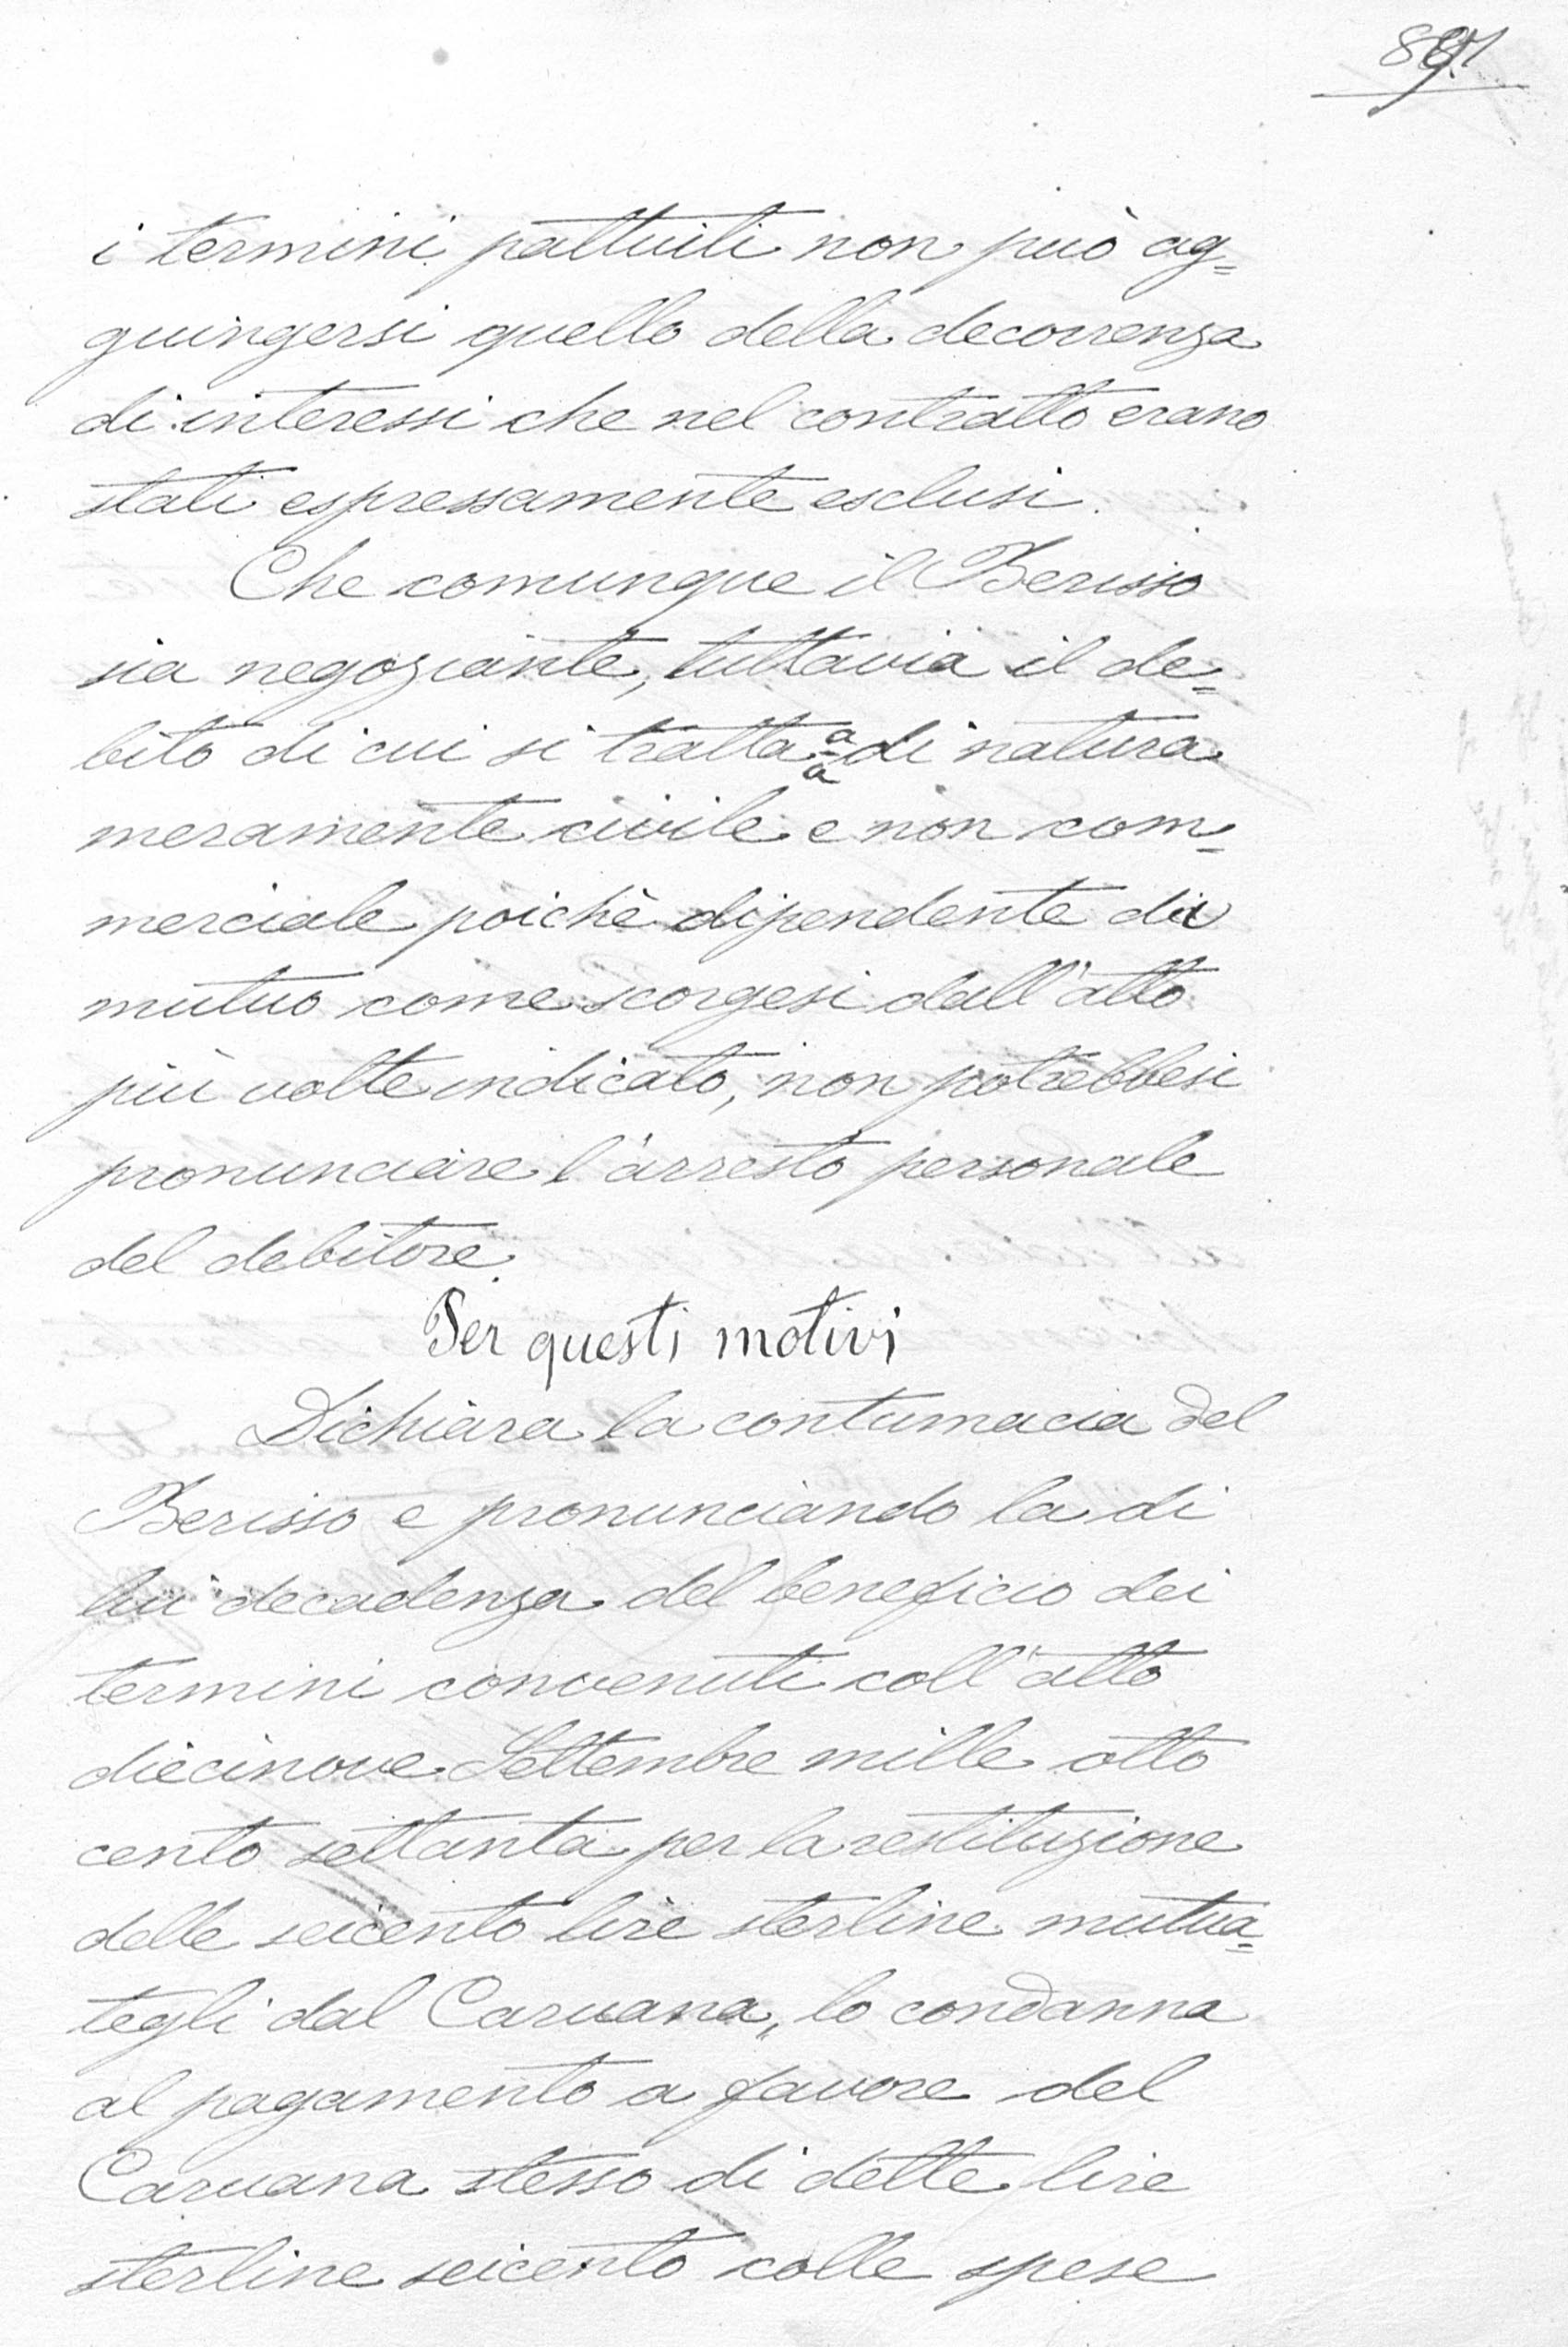 i termini pattuiti non può ag=
guingersi quello della decorrenza
di interessi che nel contratto erano
stati espressamente esclusi.
Che comunque il Berisso
sia negoziante, tuttavia il de=
bito di cui si tratta di natura
meramente civile e non com=
merciale poichè dipendente da
mutuo come scorgesi dall'atto
più volte indicato, non potrebbesi
pronunciare l'arresto personale
del debitore.
Per questi motivi
Dichiara la contumacia del
Berisso e pronunciando la di
lui decadenza del beneficio dei
termini convenuti coll'atto
diecinove Settembre mille otto
cento settanta per la restituzione
delle seicento lire sterline mutua=
tegli dal Caruana, lo condanna
al pagamento a favore del
Caruana stesso di dette lire
sterline seicento colle spese